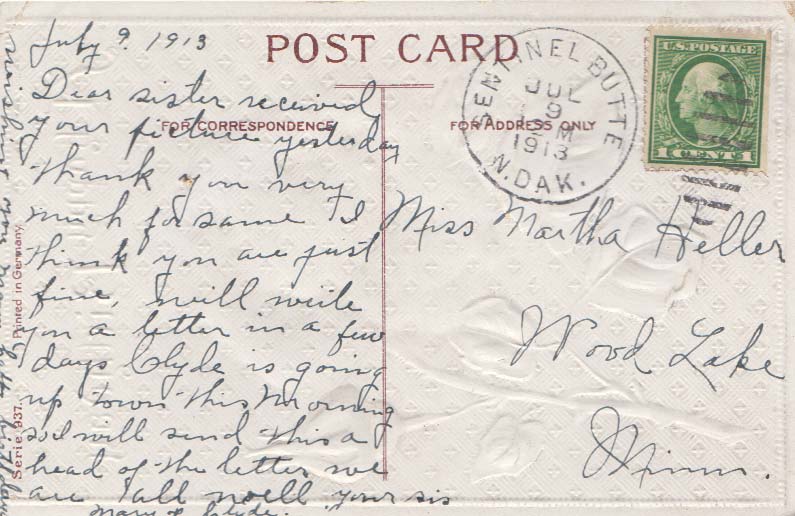 July 9. 1913
POST CARD
FOR CORRESPONDENCE
FOR ADDRESS ONLY
Dear sister received
your picture yesterday
thank you very
much for same I
think you are just
fine, will write
you a letter in a few
days Clyde is going
up town this morning
so I will send this a
head of the letter we
are all well your sis
Mary & Clyde.
wishing you many happy birthdays
Serie 937. Printed in Germany.
SENTINEL BUTTE
JUL
9
M
1913
N. DAK.
U.S. POSTAGE
1 CENT 1
Miss Martha Heller
Wood Lake
Minn.